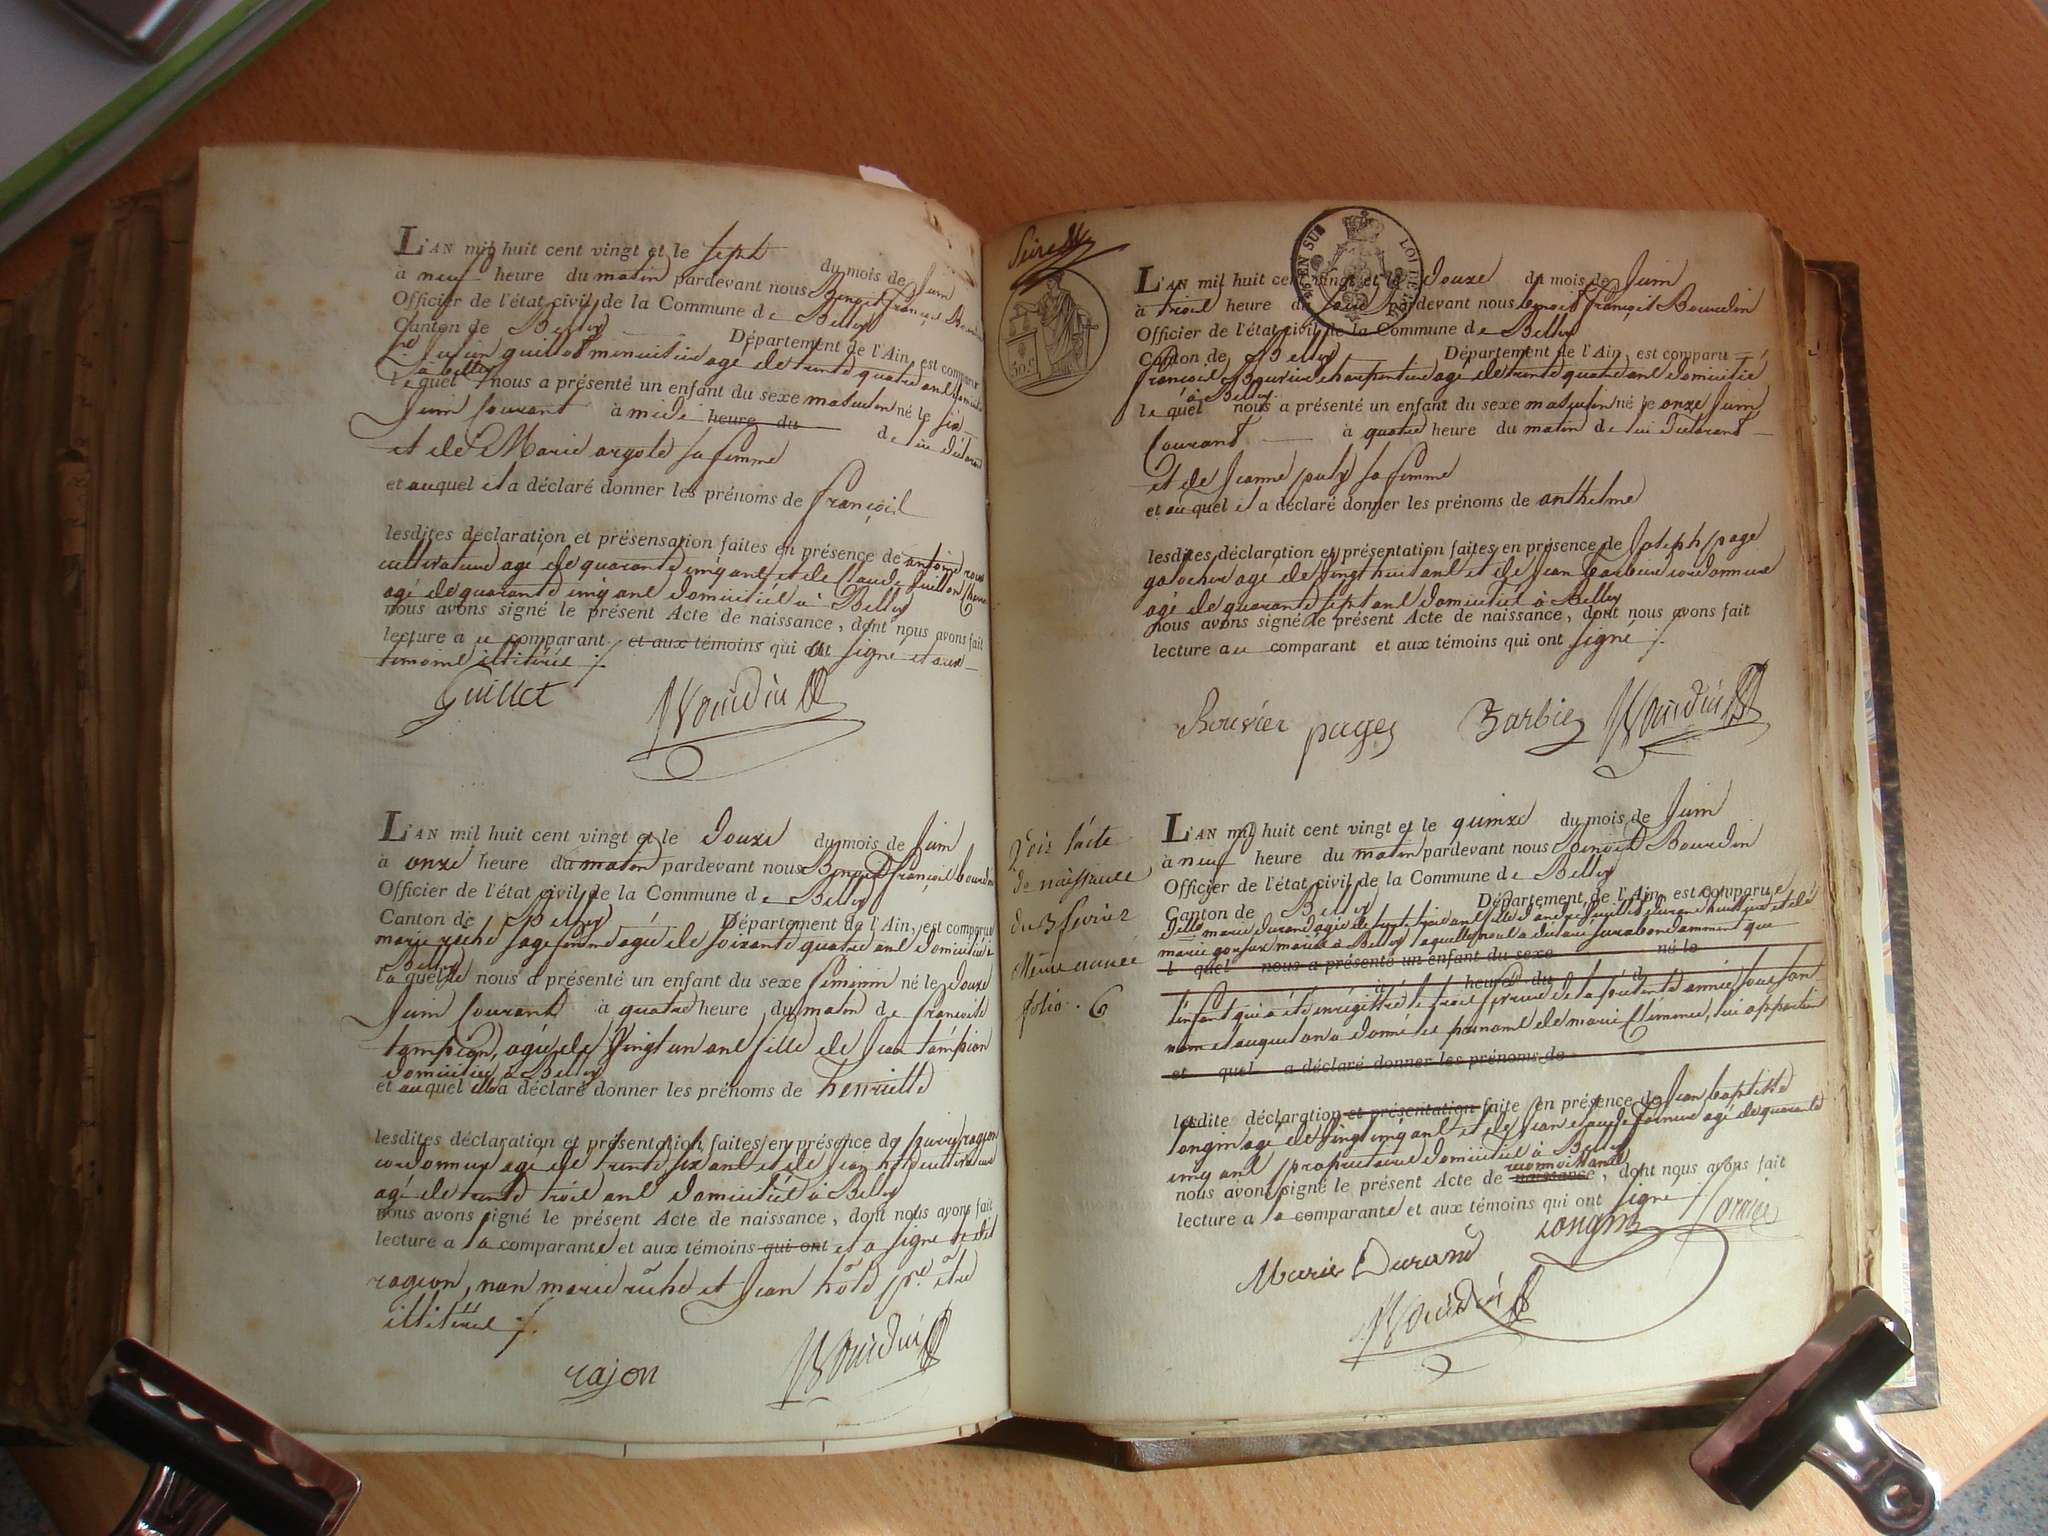 L'AN mil huit cent vingt et le sept du mois de Juin
à neuf heure du matin pardevant nous Benoit françois
Officier de l'état civil de la Commune de Belley
Canton de Belley Département de l'Ain, est comparu
guillot age de trente quatre ans
à belley
lequel nous a présenté un enfant du sexe masculin né le six
Juin Courant à midi heure du de lui déclarant
et de Marie argote sa femme
et auquel il a déclaré donner les prénoms de françois
lesdites déclaration et présensation faites en présence de antoine
cultivateur agé de quarante cinq ans et de Claude
agé de quarante cinq ans domiciliés à Belley
nous avons signé le présent Acte de naissance, dont nous avons fait
lecture a ce comparant et aux témoins qui a signé et aux
temoins illitérés
Guillet Bourdin
L'AN mil huit cent vingt et le douze du mois de Juin
à onze heure du matin pardevant nous Benoit françois bourdin
Officier de l'état civil de la Commune de Belley
Canton de Belley Département de l'Ain, est comparue
marie roche sage femme agée de soixante quatre ans domiciliée à
Belley
laquelle nous a présenté un enfant du sexe féminin né le douze
Juin Courant à quatre heure du matin de françoise
tampion, agée de vingt un ans fille de Jean tampion
domiciliée à Belley
et auquel elle a déclaré donner les prénoms de henriette
lesdites déclaration et présentation faites en présence de
cordonnier agé de trente six ans et de Jean cultivateur
agé de trente trois ans domiciliés à Belley
nous avons signé le présent Acte de naissance, dont nous avons fait
lecture a la comparante et aux témoins qui ont et a signé
rageon, non marie roche et Jean
illitérés
rajon Bourdin
50 c
L'AN mil huit cent vingt et le Douze du mois de Juin
à trois heure du soir pardevant nous benoit françois Bourdin
Officier de l'état civil de la Commune de Belley
Canton de Belley Département de l'Ain, est comparu
françois Bouvier charpentier agé de trente quatre ans domicilié
à Belley
lequel nous a présenté un enfant du sexe masculin né le onze Juin
Courant à quatre heure du matin de lui déclarant
et de Jeanne sa femme
et auquel il a déclaré donner les prénoms de anthelme
lesdites déclaration et présentation faites en présence de Joseph page
agé de vingt huit ans et de Jean barbier cordonnier
agé de quarante sept ans domiciliés à Belley
nous avons signé le présent Acte de naissance, dont nous avons fait
lecture a ce comparant et aux témoins qui ont signé
Bouvier pages Barbier Bourdin
Voir l'acte
de naissance
du 3 fevrier
même année
folio. 6
L'AN mil huit cent vingt et le quinze du mois de Juin
à neuf heure du matin pardevant nous Benoit Bourdin
Officier de l'état civil de la Commune de Belley
Canton de Belley Département de l'Ain, est comparue
Dlle marie durand agée de trente trois ans fille d'andré
laquelle nous a déclaré surabondamment que
l quel nous a présenté un enfant du sexe né le
à heure du d
l'enfant qui a été enregistré le trois fevrier de la présente année sous son
nom et auquel on a donné les prénoms de marie Clémence, lui appartient
et quel a déclaré donner les prénoms de
lesdite déclaration et présentation faite en présence de Jean baptiste
Longin agé de vingt cinq ans et de Jean claude agé de quarante
cinq ans propriétaires domiciliés à Belley
reconnoissance
nous avons signé le présent Acte de naissance, dont nous avons fait
lecture a la comparante et aux témoins qui ont signé
Longin
Marie Durand
Bourdin